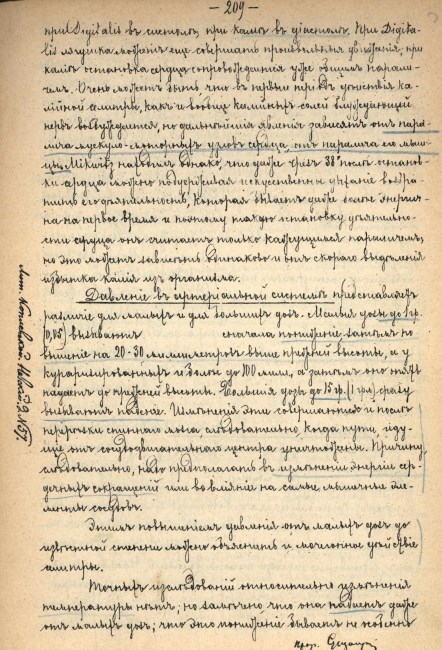 — 209 —
при Digitalis въ систолѣ, при каліѣ въ діастолѣ. При Digita-
lis лягушка можетъ еще совершать произвольныя движенія, при
каліѣ остановка сердца сопровождается уже общимъ парали-
чемъ. Очень можетъ быть что въ первый періодъ дѣйствія ка-
лійной селитры, какъ и вообще калійныхъ солей
нервъ возбуждается, но дальнѣйшія явленія зависятъ отъ пара-
лича мускуло-моторныхъ узловъ сердца, отъ паралича его мыш-
цы. находилъ однако, что даже чрезъ 38' послѣ останов-
ки сердца можно поддерживая искуственное дыханіе возвра-
тить его дѣятельность, которая бываетъ даже болѣе энергич-
на на первое время и поэтому такую остановку дѣятельно-
сти сердца онъ считаетъ только кажущимся параличемъ,
но это можетъ зависѣть одинаково и отъ скораго выдѣленія
избытка калія изъ организма.
Давленіе въ артеріальной системѣ представляетъ
различіе для малыхъ и для большихъ дозъ. Малыя дозы до 1 гр.
(0,05) вызываютъ сначала пониженіе затѣмъ по
вышеніе на 20-30 миллиметровъ выше прежней высоты, а у
кураризированныхъ и болѣе до 100 милл., а затѣмъ оно опять
падаетъ до прежней высоты. Большія дозы до 15 гр. (1 грм) сразу
вызываютъ паденіе. Измѣненія эти совершаются и послѣ
перерѣзки спиннаго мозга слѣдовательно, когда пути, иду-
щіе отъ сосудодвигательнаго центра уничтожены. Причину,
слѣдовательно, надо предполагать въ измѣненіи энергіи сер-
дечныхъ сокращеній или во вліяніе на самые мышечные эле-
менты сосудовъ.
Этимъ повышеніемъ давленія отъ малыхъ дозъ до
извѣстной степени можно объяснить и мочегонное дѣйствіе
селитры.
Точныхъ изслѣдованій относительно измѣненія
температуры нѣтъ; но замѣчено что она падаетъ даже
отъ малыхъ дозъ; что это пониженіе бываетъ не особенно
Проф.
Лит.